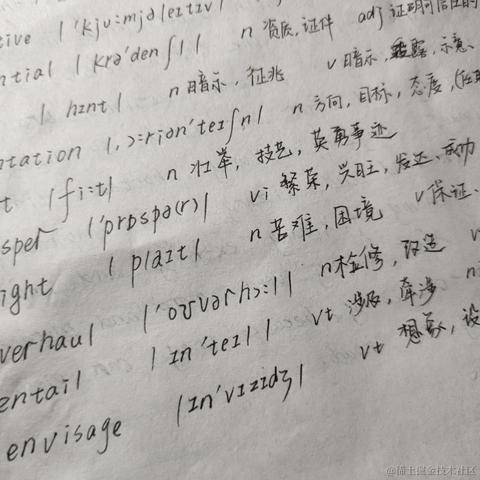 tive |ˈkjuːmjəleɪtɪv|
ntial |krəˈdenʃl| n 资质,证件 adj 证明
| hɪnt | n 暗示,征兆 v 暗示,透露,示意、
ntation |ˌɔːriənˈteɪʃn| n 方向,目标,态度,
t |fiːt| n 壮举,技艺,英勇事迹
sper |ˈprɒspə(r)| vi 繁荣,兴旺、发达、成功
ight | plaɪt | n 苦难,困境 v 保证、
verhaul |ˈoʊvərhɔːl| n 检修,改造 v
entail | ɪnˈteɪl | vt 涉及,牵涉 n
envisage |ɪnˈvɪzɪdʒ| vt 想象,设
@稀土掘金技术社区